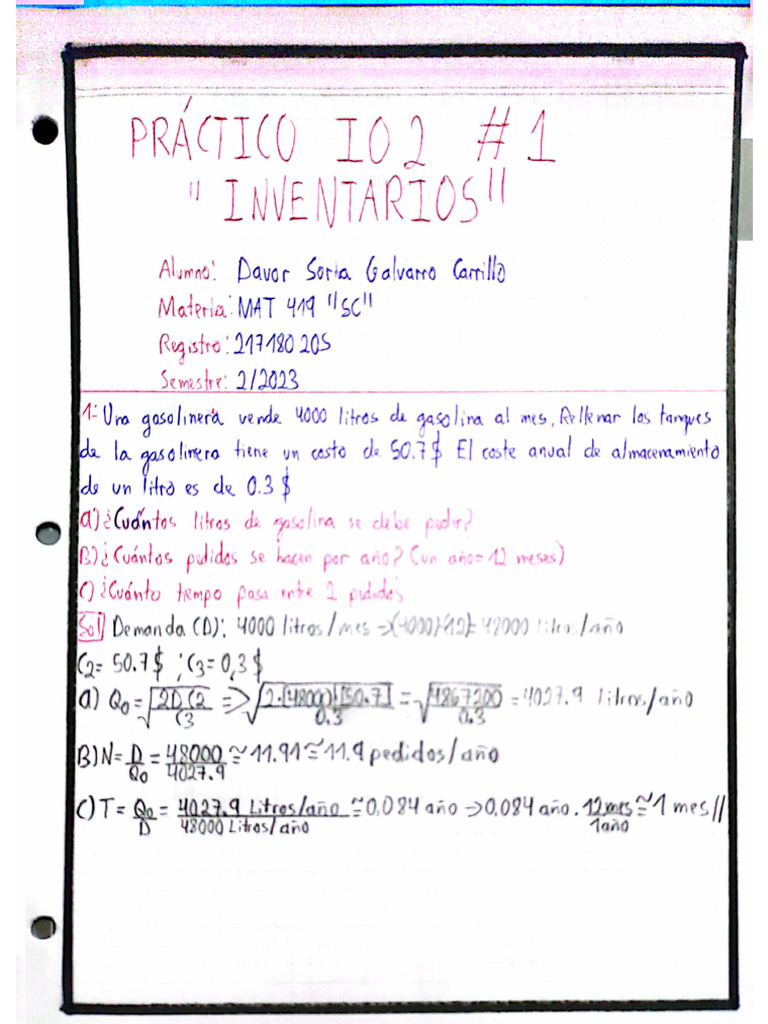 PRÁCTICO IO2 #1
"INVENTARIOS"
Alumno: Davor Soria Galvarro Carrillo
Materia: MAT 419 "SC"
Registro: 217180205
Semestre: 2/2023
1- Una gasolinera vende 4000 litros de gasolina al mes. Rellenar los tanques
de la gasolinera tiene un costo de 50.7$ El coste anual de almacenamiento
de un litro es de 0.3$
a) ¿Cuántos litros de gasolina se debe pedir?
B) ¿Cuántos pedidos se hacen por año? (un año=12 meses)
C) ¿Cuánto tiempo pasa entre 2 pedidos
Sol Demanda (D): 4000 litros/mes → (4000)(12)= 48000 litros/año
C2= 50.7$ ; C3= 0,3$
a) Q0 = √(2D C2 / C3) => √(2·(48000)(50.7) / 0.3) = √(4867200 / 0.3) = 4027.9 Litros/año
B) N= D/Q0 = 48000/4027.9 ≅ 11.91 ≅ 11.9 pedidos/año
C) T= Q0/D = 4027.9 Litros/año / 48000 Litros/año ≅ 0,084 año → 0,084 año · 12 mes/1 año ≅ 1 mes//